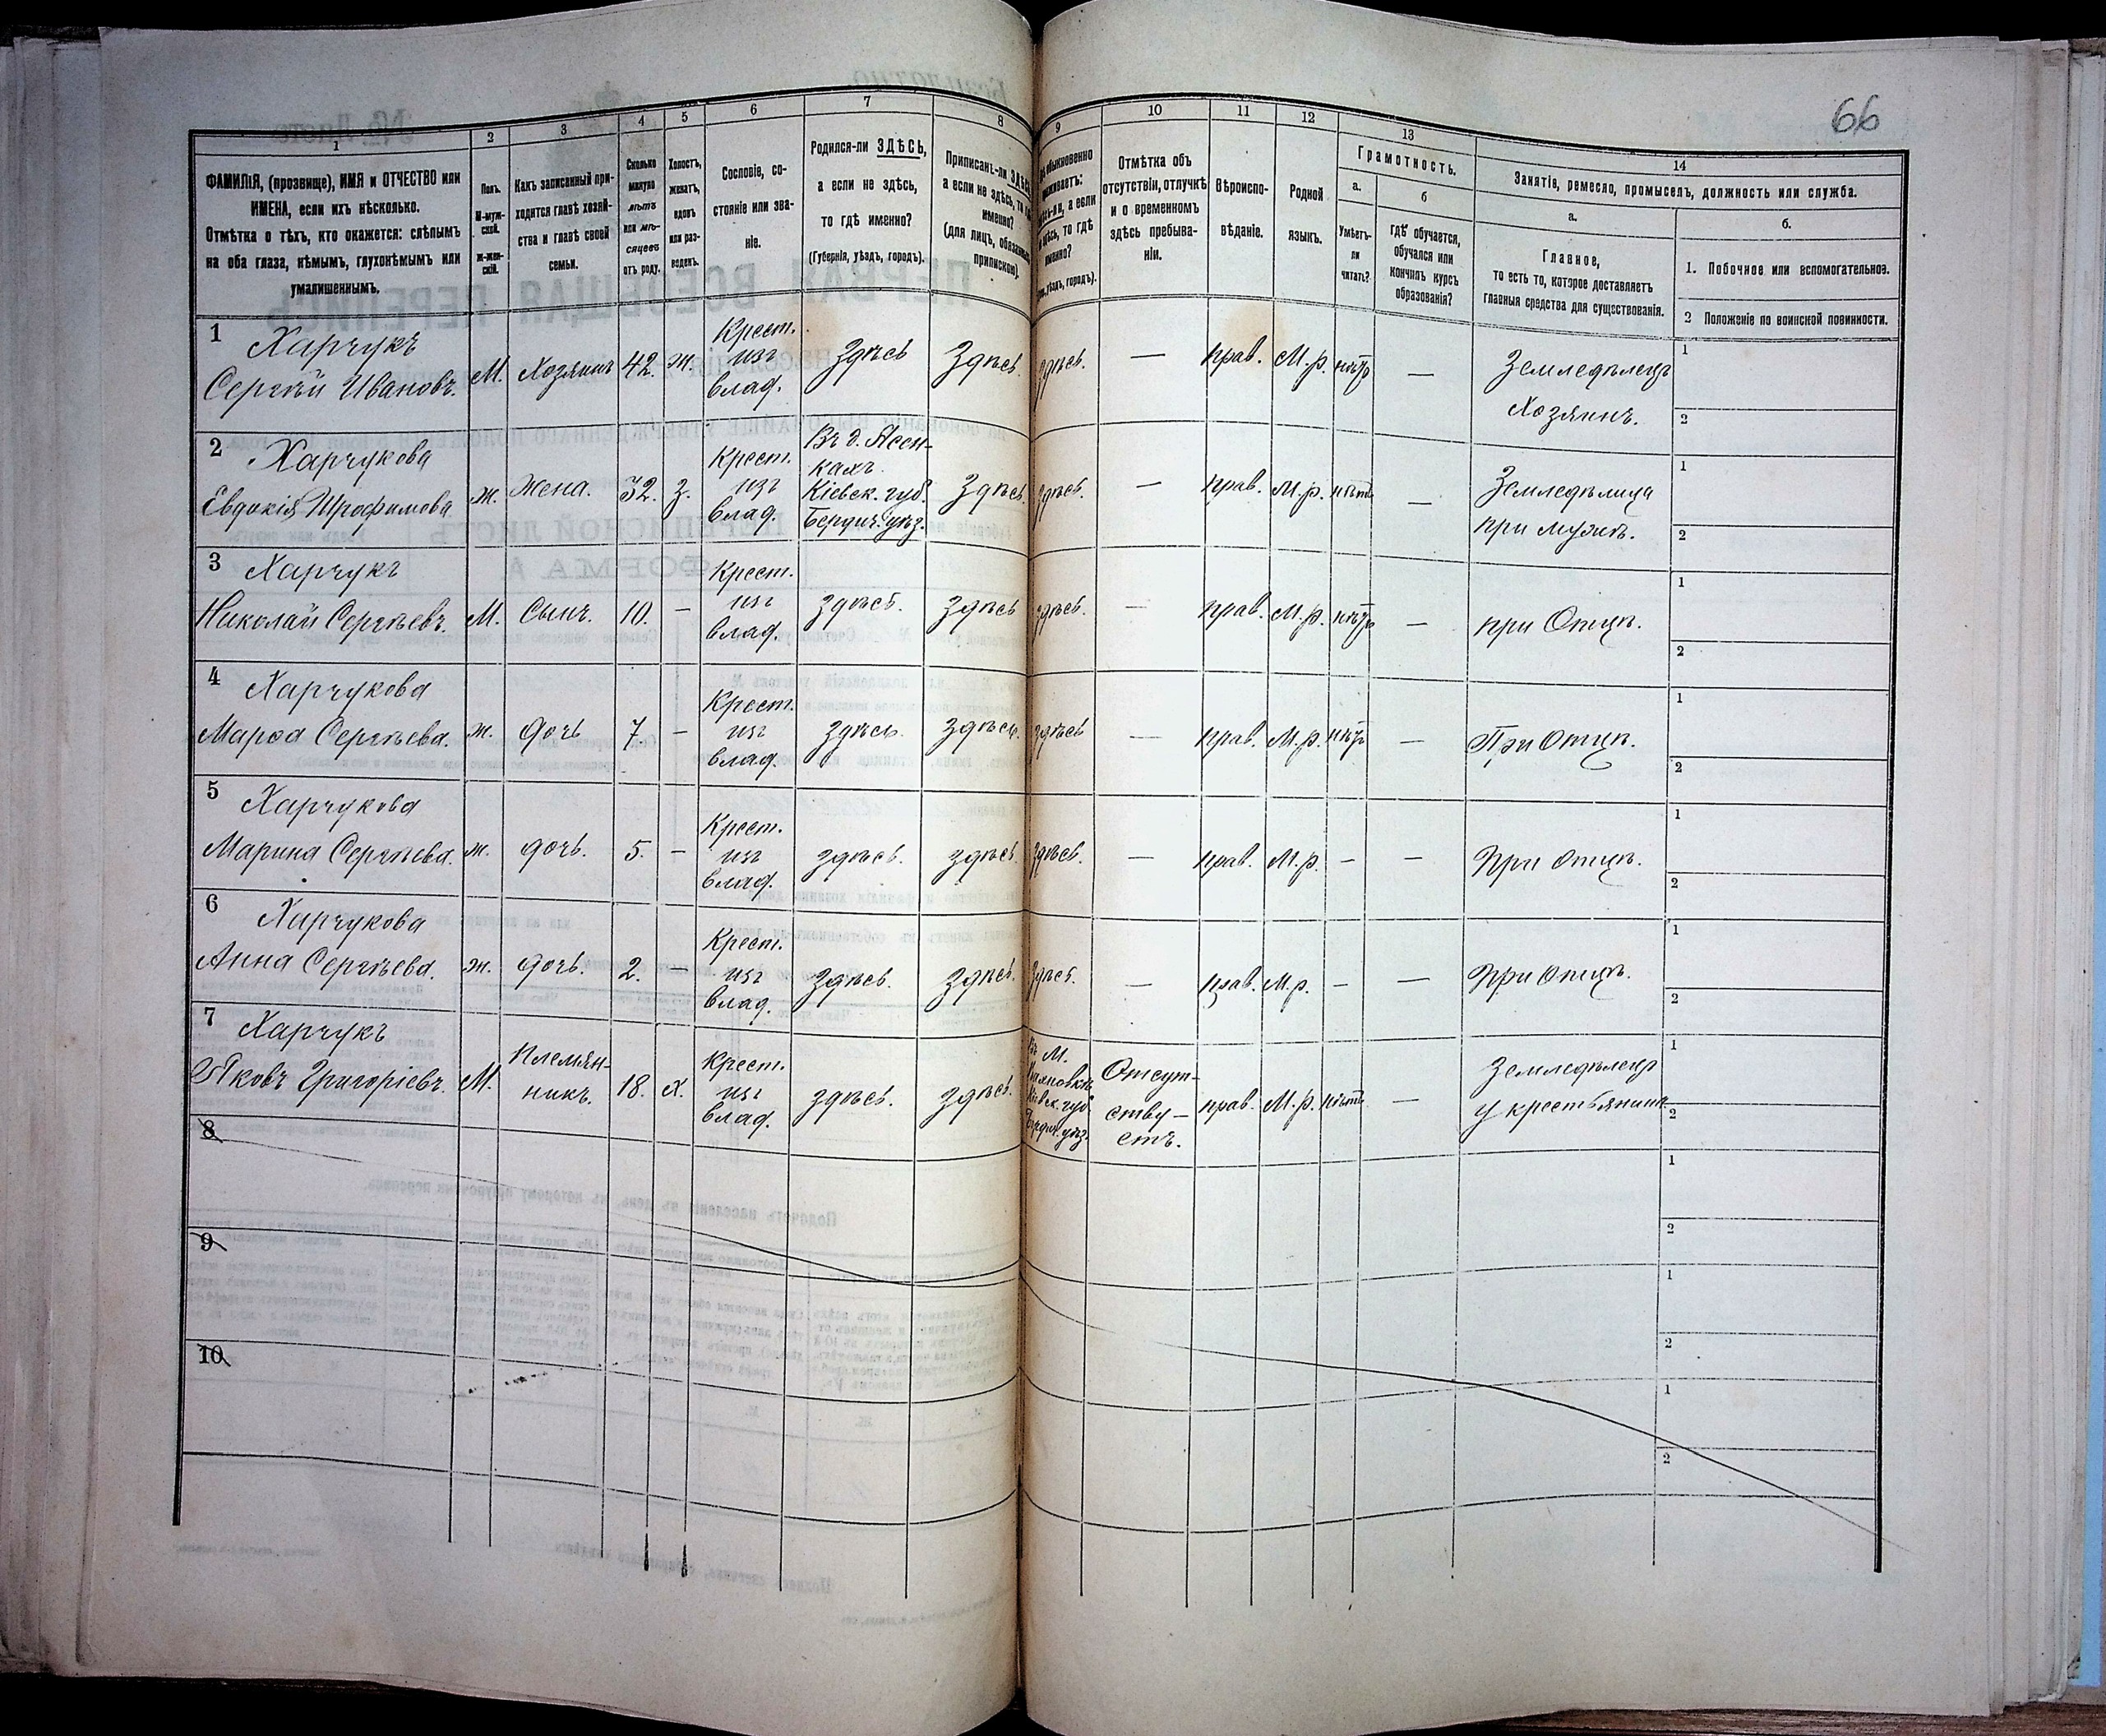 66
1
2
3
4
5
6
7
8
9
10
11
12
13
14
ФАМИЛІЯ, (прозвище), ИМЯ и ОТЧЕСТВО или
ИМЕНА, если ихъ нѣсколько.
Отмѣтка о тѣхъ, кто окажется: слѣпымъ
на оба глаза, нѣмымъ, глухонѣмымъ или
умалишеннымъ.
Полъ.
М-муж-
ской.
Ж-жен-
скій.
Какъ записанный при-
ходится главѣ хозяй-
ства и главѣ своей
семьи.
Сколько
минуло
лѣтъ
или мѣ-
сяцевъ
отъ роду.
Холостъ,
женатъ,
вдовъ
или раз-
веденъ.
Сословіе, со-
стояніе или зва-
ніе.
Родился-ли ЗДѢСЬ,
а если не здѣсь,
то гдѣ именно?
(Губернія, уѣздъ, городъ).
Приписанъ-ли
а если не здѣсь,
именно?
(для лицъ,
припиской)
обыкновенно
а если
то гдѣ
уѣздъ, городъ).
Отмѣтка объ
отсутствіи, отлучкѣ
и о временномъ
здѣсь пребыва-
ніи.
Вѣроиспо-
вѣданіе.
Родной
языкъ.
Грамотность.
а.
Умѣетъ-
ли
читать?
б
гдѣ обучается,
обучался или
кончилъ курсъ
образованія?
Занятіе, ремесло, промыселъ, должность или служба.
а.
Главное,
то есть то, которое доставляетъ
главныя средства для существованія.
б.
1. Побочное или вспомогательное.
2 Положеніе по воинской повинности.
1 Харчукъ
Сергѣй Ивановъ.
М.
Хозяинъ
42.
ж.
Крест.
изъ
влад.
Здѣсь
Здѣсь.
здѣсь.
—
прав.
М.р.
нѣтъ
—
Земледѣлецъ
Хозяинъ.
1
2
2 Харчукова
Евдокія Трофимова
ж.
Жена.
32.
з.
Крест.
изъ
влад.
Въ д. Ясен-
кахъ
Кіевск. губ.
Бердич. уѣз.
Здѣсь.
здѣсь.
—
прав.
М.р.
нѣтъ
—
Земледѣлица
при мужѣ.
1
2
3 Харчукъ
Николай Сергѣевъ.
М.
Сынъ.
10.
—
Крест.
изъ
влад.
Здѣсь.
Здѣсь
здѣсь.
—
прав.
М.р.
нѣтъ
—
при Отцѣ.
1
2
4 Харчукова
Сергѣева.
ж.
дочь
7.
—
Крест.
изъ
влад.
Здѣсь.
Здѣсь.
здѣсь
—
прав.
М.р.
нѣтъ
—
При Отцѣ.
1
2
5 Харчукова
Марина Сергѣева.
ж.
дочь.
5.
—
Крест.
изъ
влад.
здѣсь.
здѣсь.
здѣсь.
—
прав.
М.р.
—
—
При Отцѣ.
1
2
6 Харчукова
Анна Сергѣева.
ж.
дочь.
2.
—
Крест.
изъ
влад.
Здѣсь.
Здѣсь.
здѣсь.
—
прав.
М.р.
—
—
При Отцѣ.
1
2
7 Харчукъ
Яковъ Григоріевъ.
М.
Племян-
никъ.
18.
х.
Крест.
изъ
влад.
здѣсь.
здѣсь.
М.
Кіевск. губ.
Бердич. уѣз.
Отсут-
ству-
етъ.
прав.
М.р.
нѣтъ
—
Земледѣлецъ
у крестьянина
1
2
8
1
2
9
1
2
10
1
2